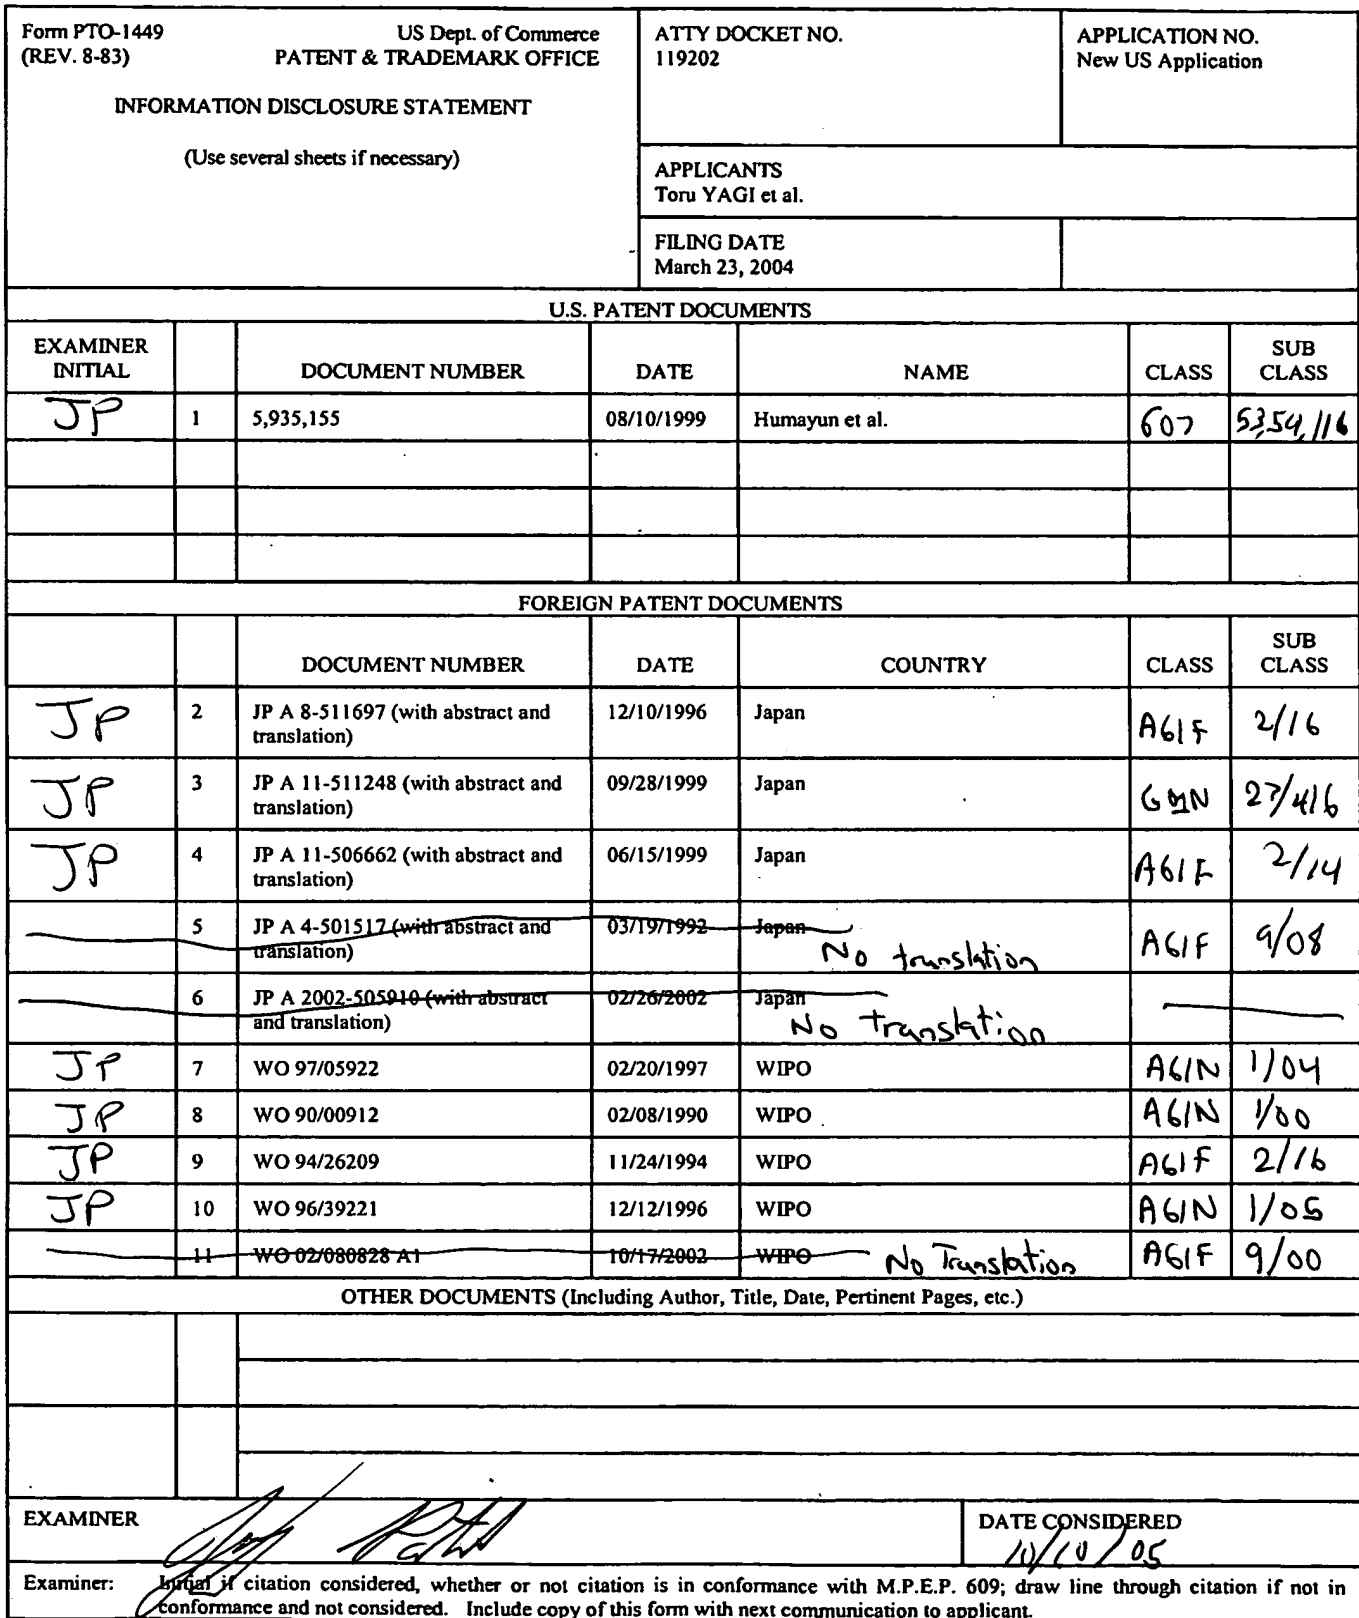 Form PTO-1449 US Dept. of Commerce
(REV. 8-83) PATENT & TRADEMARK OFFICE
INFORMATION DISCLOSURE STATEMENT
(Use several sheets if necessary)
ATTY DOCKET NO.
119202
APPLICATION NO.
New US Application
APPLICANTS
Toru YAGI et al.
FILING DATE
March 23, 2004
U.S. PATENT DOCUMENTS
EXAMINER INITIAL DOCUMENT NUMBER DATE NAME CLASS SUB CLASS
JP 1 5,935,155 08/10/1999 Humayun et al. 607 53,54,116
FOREIGN PATENT DOCUMENTS
DOCUMENT NUMBER DATE COUNTRY CLASS SUB CLASS
JP 2 JP A 8-511697 (with abstract and 12/10/1996 Japan A61F 2/16
translation)
JP 3 JP A 11-511248 (with abstract and 09/28/1999 Japan 27/416
translation)
JP 4 JP A 11-506662 (with abstract and 06/15/1999 Japan A61F 2/14
translation)
5 JP A 4-501517 (with abstract and 03/19/1992 Japan A61F 9/08
translation) No translation
6 JP A 2002-505910 (with abstract 02/26/2002 Japan
and translation) No translation
JP 7 WO 97/05922 02/20/1997 WIPO A61N 1/04
JP 8 WO 90/00912 02/08/1990 WIPO A61N 1/00
JP 9 WO 94/26209 11/24/1994 WIPO A61F 2/16
JP 10 WO 96/39221 12/12/1996 WIPO A61N 1/05
11 WO 02/080828 A1 10/17/2002 WIPO No Translation A61F 9/00
OTHER DOCUMENTS (Including Author, Title, Date, Pertinent Pages, etc.)
EXAMINER
DATE CONSIDERED
10/10/05
Examiner: Initial if citation considered, whether or not citation is in conformance with M.P.E.P. 609; draw line through citation if not in
conformance and not considered. Include copy of this form with next communication to applicant.